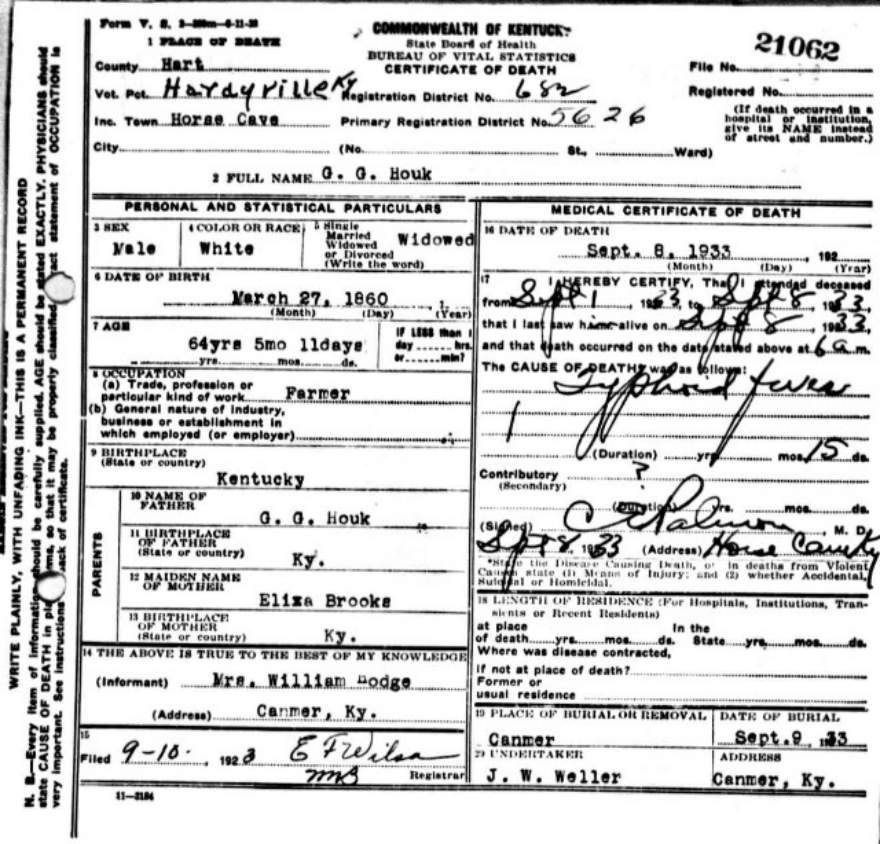 Form V. S. 3-200m-6-11-30
COMMONWEALTH OF KENTUCKY
State Board of Health
BUREAU OF VITAL STATISTICS
CERTIFICATE OF DEATH
21062
File No.
Registered No.
(If death occurred in a hospital or institution, give its NAME instead of street and number.)
1 PLACE OF DEATH
County Hart
Vot. Pct. Hardyville Ky Registration District No. 682
Inc. Town Horse Cave Primary Registration District No. 5626
City (No. St., Ward)
2 FULL NAME G. G. Houk
PERSONAL AND STATISTICAL PARTICULARS
3 SEX Male
4 COLOR OR RACE White
5 Single Married Widowed or Divorced (Write the word) Widowed
6 DATE OF BIRTH
March 27, 1860, 1
(Month) (Day) (Year)
7 AGE
64yrs 5mo 11days
yrs. mos. ds.
IF LESS than 1 day hrs. or min?
8 OCCUPATION
(a) Trade, profession or particular kind of work Farmer
(b) General nature of industry, business or establishment in which employed (or employer)
9 BIRTHPLACE
(State or country)
Kentucky
PARENTS
10 NAME OF FATHER
G. G. Houk
11 BIRTHPLACE OF FATHER
(State or country) Ky.
12 MAIDEN NAME OF MOTHER
Eliza Brooks
13 BIRTHPLACE OF MOTHER
(State or country) Ky.
14 THE ABOVE IS TRUE TO THE BEST OF MY KNOWLEDGE
(Informant) Mrs. William Dodge
(Address) Canmer, Ky.
15
Filed 9-10-, 1923 E F Wilson
Registrar
11-3184
MEDICAL CERTIFICATE OF DEATH
16 DATE OF DEATH
Sept. 8, 1933, 192
(Month) (Day) (Year)
17 I HEREBY CERTIFY, That I attended deceased
from Sept 1, 1933, to Sept 8 1933
that I last saw him alive on Sept 8, 1933,
and that death occurred on the date stated above at 6 a m.
The CAUSE OF DEATH was as follows:
Typhoid fever
(Duration) yrs. mos. 15 ds.
Contributory ?
(Secondary)
(Duration) yrs. mos. ds.
(Signed) M. D.
Sept 8, 1933 (Address) Horse Cave Ky
*State the Disease Causing Death, or in deaths from Violent Causes state (1) Means of Injury; and (2) whether Accidental, Suicidal or Homicidal.
18 LENGTH OF RESIDENCE (For Hospitals, Institutions, Transients or Recent Residents)
at place of death yrs. mos. ds. In the State yrs. mos. ds.
Where was disease contracted,
If not at place of death?
Former or usual residence
19 PLACE OF BURIAL OR REMOVAL
Canmer
DATE OF BURIAL
Sept. 9 1933
20 UNDERTAKER
J. W. Weller
ADDRESS
Canmer, Ky.
WRITE PLAINLY, WITH UNFADING INK—THIS IS A PERMANENT RECORD
N. B.—Every item of information should be carefully supplied. AGE should be stated EXACTLY. PHYSICIANS should
state CAUSE OF DEATH in plain terms, so that it may be properly classified. Exact statement of OCCUPATION is
very important. See instructions back of certificate.